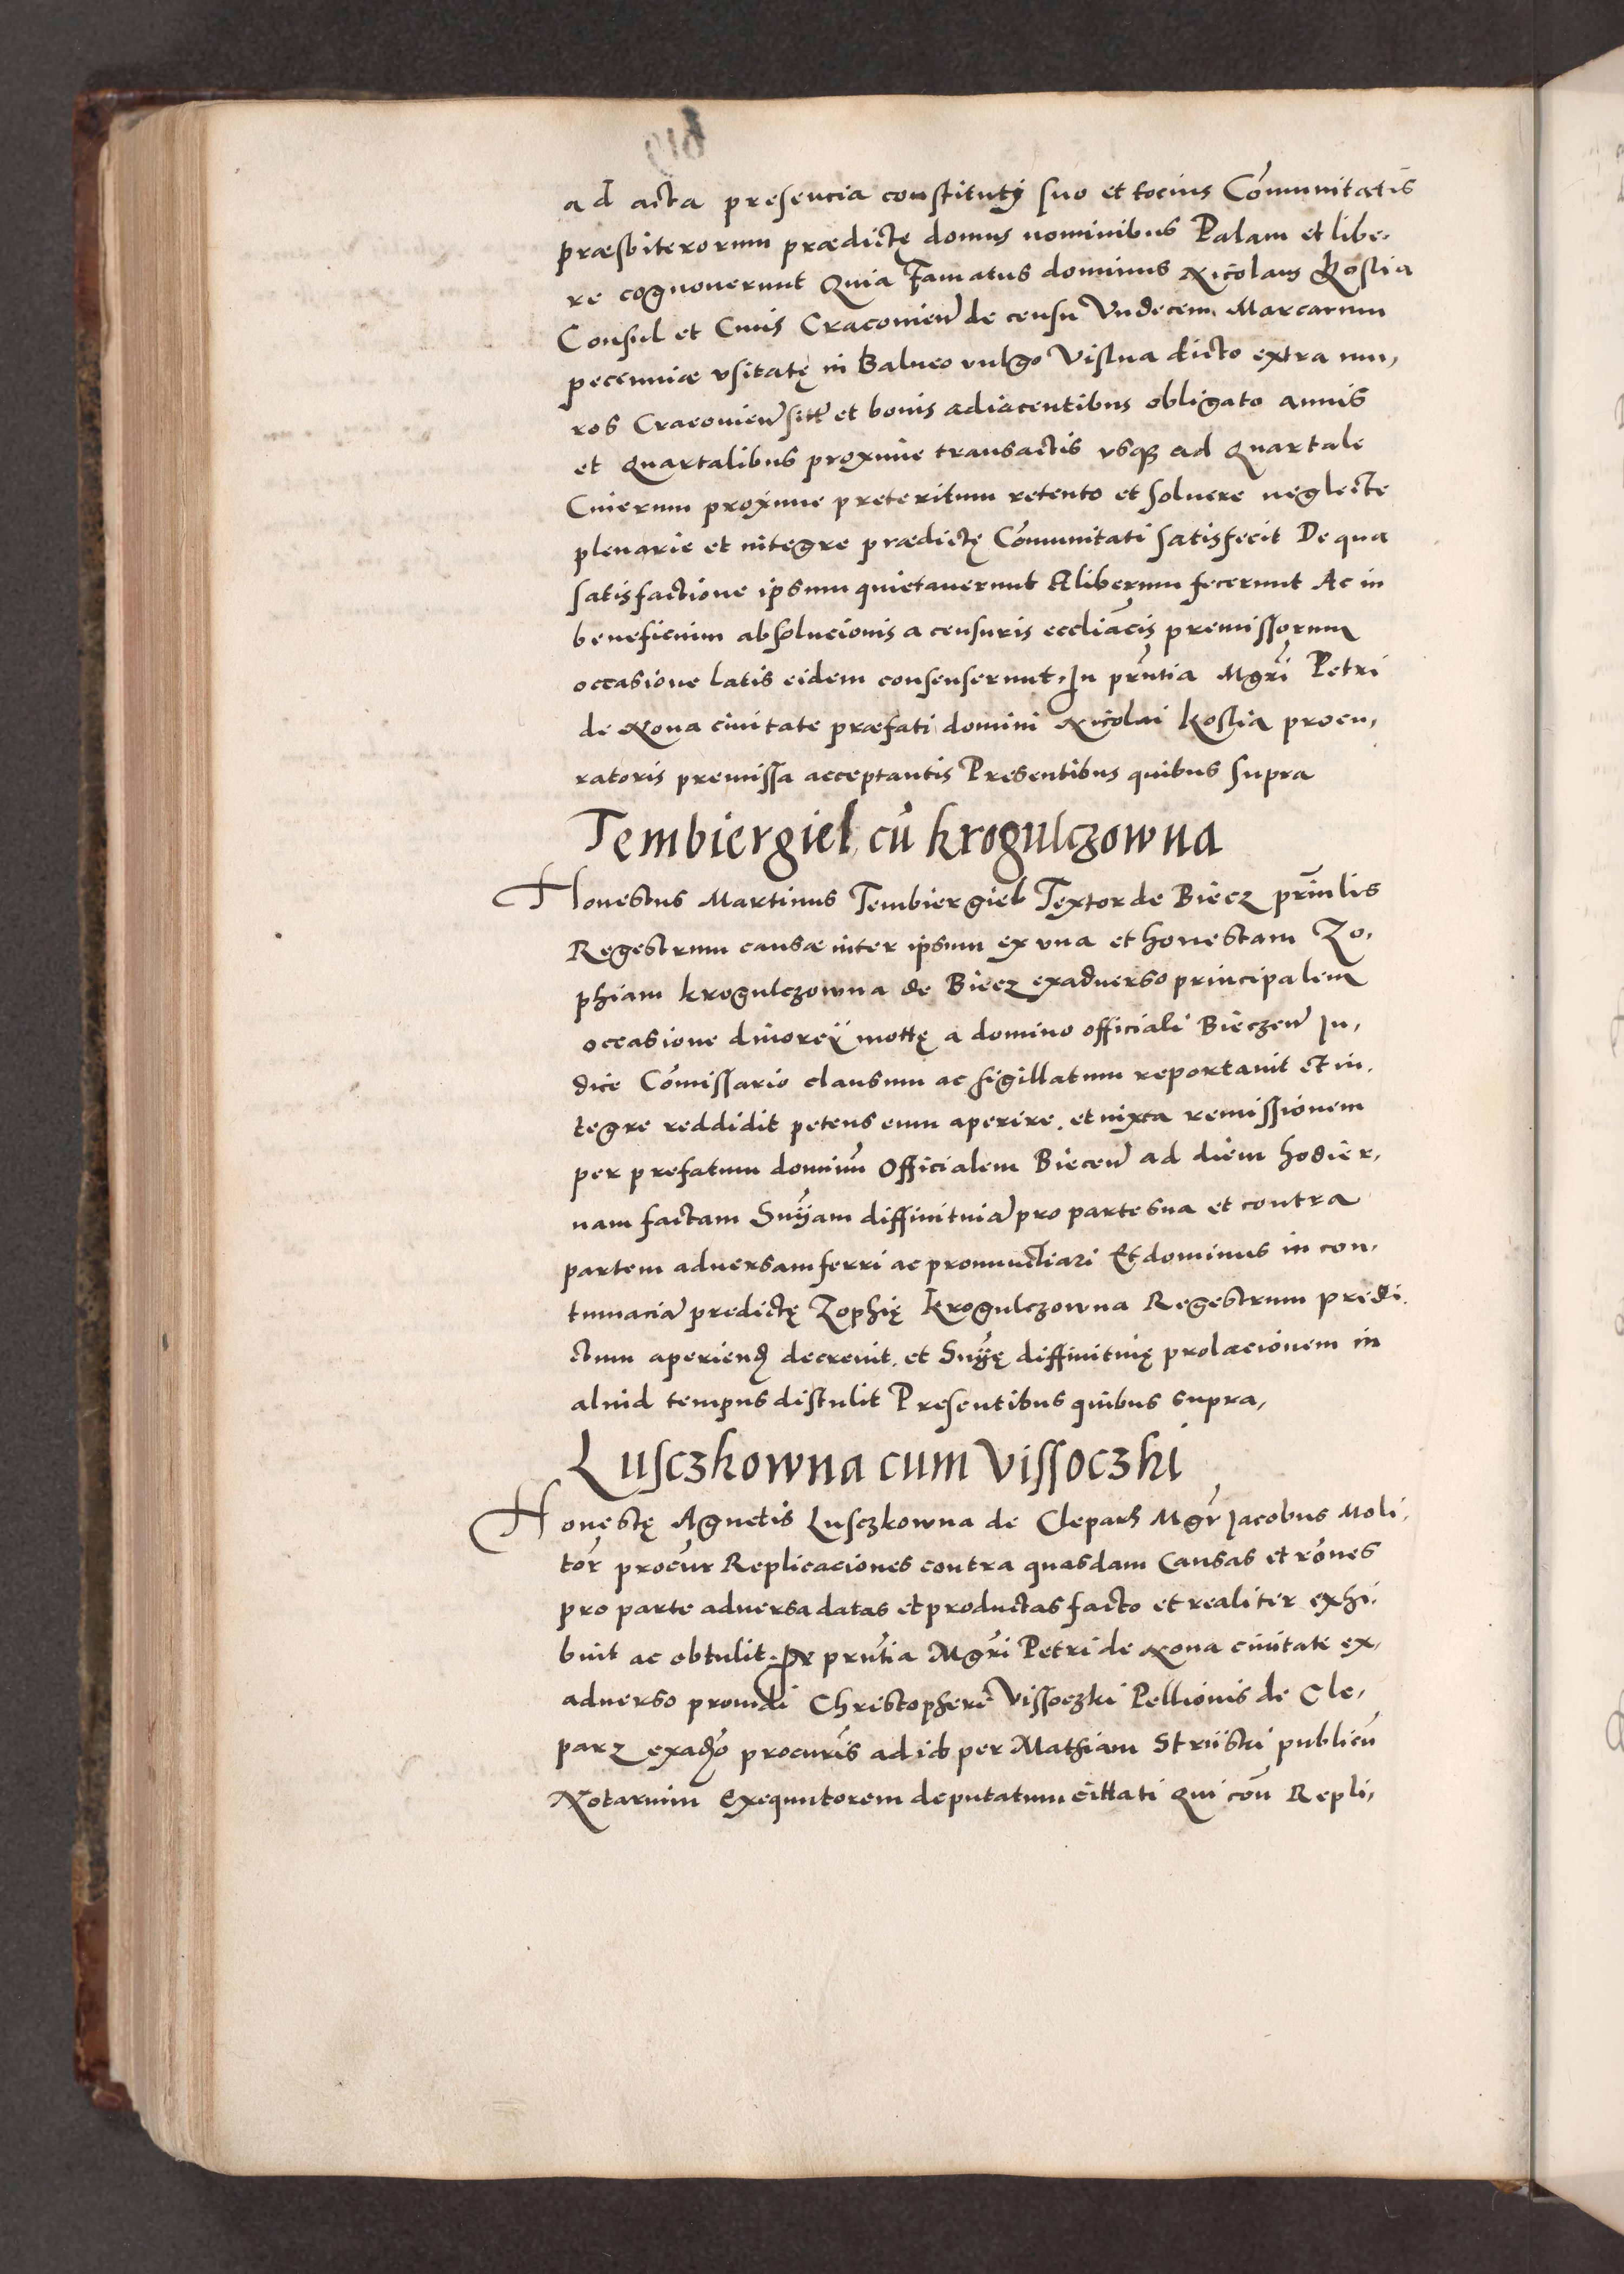 ad acta presencia constituti suo et tocius Cōmunitatis
præsbiterorum prædictę domus nominibus Palam et libe,
re cognouerunt Quia Famatus dominus Nicolaus Kostia
Consul et Ciuis Cracouień de censu Vndecem Marcarum
pecunniæ vsitatę in Balneo vulgo Vislna dicto extra mu,
ros Cracouień sitt et bonis adiacentibus obligato annis
et Quartalibus proxime transactis vsq; ad Quartale
Cinerum proxime preteritum retento et soluere neglecte
plenarie et integre prædictę Cōmunitati satisfecit De qua
satisfactione ipsum quietauerunt & liberum fecerunt Ac in
beneficium absolucionis a censuris eccliācis premissorum
occasione latis eidem consenserunt, In prn̄tia Mgrī Petri
de Noua ciuitate præfati domini Nicolai Kostia procu,
ratoris premissa acceptantis Presentibus quibus supra
Tembiergiel cū Krogulczowna
Honestus Martinus Tembiergiel Textor de Biecz prīn̄lis
Regestrum causæ inter ipsum ex vna et honestam Zo,
phiam Krogulczowna de Biecz exaduerso principalem
occasione diuorcÿ mottę a domino officiali Bieczeń Iu,
dice Cōmissario clausum ac sigillatum reportauit et in,
tegre reddidit petens eum aperire, et iuxta remissionem
per prefatum dominū Officialem Bieceń ad diem hodier,
nam factam Sn̄ÿam diffinitiuā pro parte sua et contra
partem aduersam ferri ac pronunctiari Et dominus in con,
tumaciā predictę Zophię Krogulczowna Regestrum predi,
ctum aperiend decreuit, et Sn̄ÿę diffinitiuę prolacionem in
aliud tempus distulit Presentibus quibus supra,
Lusczkowna cum Vissoczki
Honestę Agnetis Lusczkowna de Clepars Mgr̄ Iacobus Moli,
tor procur̄ Replicaciones contra quasdam Causas et rōnes
pro parte aduersa datas et productas facto et realiter exhi,
buit ac obtulit. In prn̄tia Mgrī Petri de Noua ciuitate ex,
aduerso prouidi Christopheri Vissoczki Pellionis de Cle,
parz exadṽo procur̄is ad id per Mathiam Striiski publicū
Notarium Exequutorem deputatum cittati Qui coū Repli,